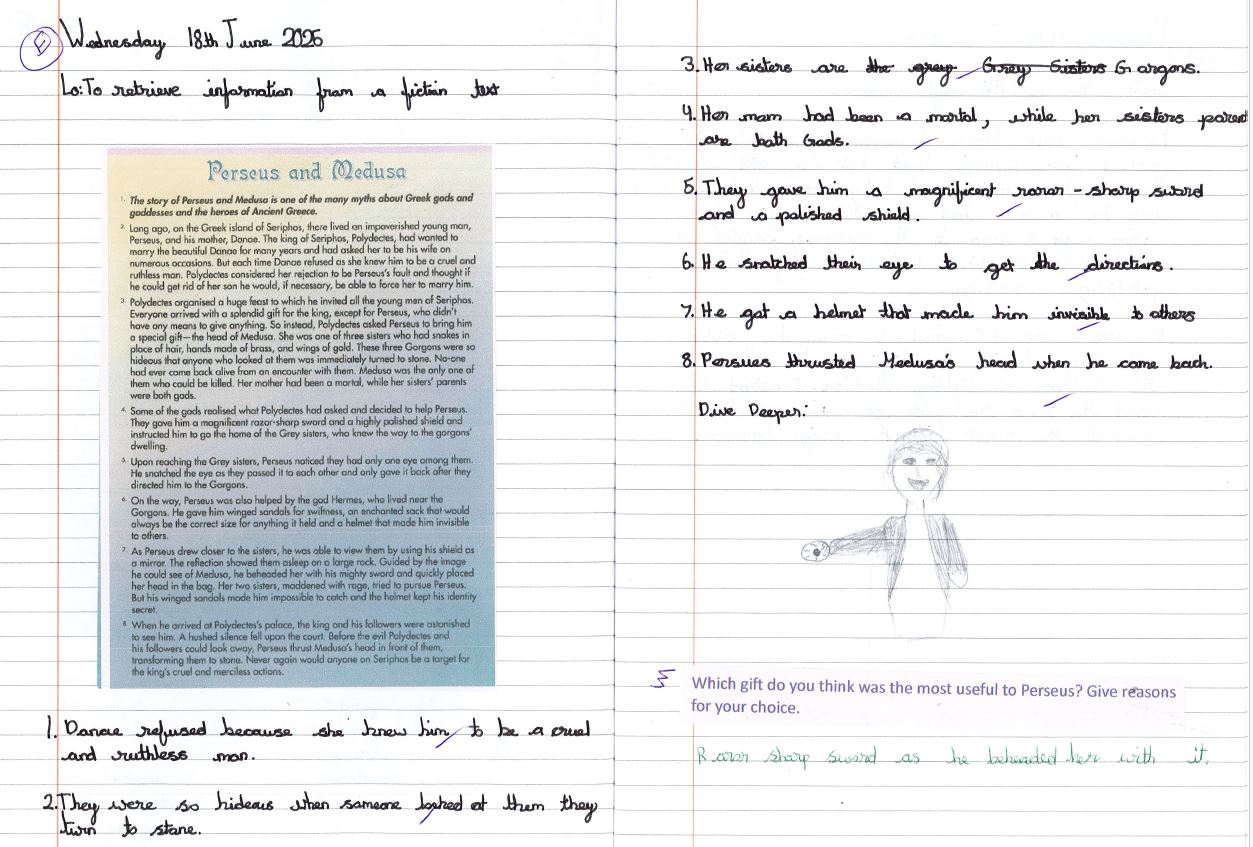 E
Wednesday 18th June 2025
Lo: To retrieve information from a fiction text
Perseus and Medusa
1. The story of Perseus and Medusa is one of the many myths about Greek gods and
goddesses and the heroes of Ancient Greece.
2. Long ago, on the Greek island of Seriphos, there lived an impoverished young man,
Perseus, and his mother, Danae. The king of Seriphos, Polydectes, had wanted to
marry the beautiful Danae for many years and had asked her to be his wife on
numerous occasions. But each time Danae refused as she knew him to be a cruel and
ruthless man. Polydectes considered her rejection to be Perseus's fault and thought if
he could get rid of her son he would, if necessary, be able to force her to marry him.
3. Polydectes organised a huge feast to which he invited all the young men of Seriphos.
Everyone arrived with a splendid gift for the king, except for Perseus, who didn't
have any means to give anything. So instead, Polydectes asked Perseus to bring him
a special gift—the head of Medusa. She was one of three sisters who had snakes in
place of hair, hands made of brass, and wings of gold. These three Gorgons were so
hideous that anyone who looked at them was immediately turned to stone. No-one
had ever come back alive from an encounter with them. Medusa was the only one of
them who could be killed. Her mother had been a mortal, while her sisters' parents
were both gods.
4. Some of the gods realised what Polydectes had asked and decided to help Perseus.
They gave him a magnificent razor-sharp sword and a highly polished shield and
instructed him to go the home of the Grey sisters, who knew the way to the gorgons'
dwelling.
5. Upon reaching the Grey sisters, Perseus noticed they had only one eye among them.
He snatched the eye as they passed it to each other and only gave it back after they
directed him to the Gorgons.
6. On the way, Perseus was also helped by the god Hermes, who lived near the
Gorgons. He gave him winged sandals for swiftness, an enchanted sack that would
always be the correct size for anything it held and a helmet that made him invisible
to others.
7. As Perseus drew closer to the sisters, he was able to view them by using his shield as
a mirror. The reflection showed them asleep on a large rock. Guided by the image
he could see of Medusa, he beheaded her with his mighty sword and quickly placed
her head in the bag. Her two sisters, maddened with rage, tried to pursue Perseus.
But his winged sandals made him impossible to catch and the helmet kept his identity
secret.
8. When he arrived at Polydectes's palace, the king and his followers were astonished
to see him. A hushed silence fell upon the court. Before the evil Polydectes and
his followers could look away, Perseus thrust Medusa's head in front of them,
transforming them to stone. Never again would anyone on Seriphos be a target for
the king's cruel and merciless actions.
1. Danae refused because she knew him to be a cruel
and ruthless man.
2. They were so hideous when someone looked at them they
turn to stone.
3. Her sisters are the grey Grey Sisters Gorgons.
4. Her mam had been a mortal, while her sisters parent
are both Gods.
5. They gave him a magnificent razor-sharp sword
and a polished shield.
6. He snatched their eye to get the directions.
7. He got a helmet that made him invisible to others
8. Persues thrusted Medusa's head when he came back.
Dive Deeper:
Which gift do you think was the most useful to Perseus? Give reasons
for your choice.
Razor sharp sword as he beheaded her with it.